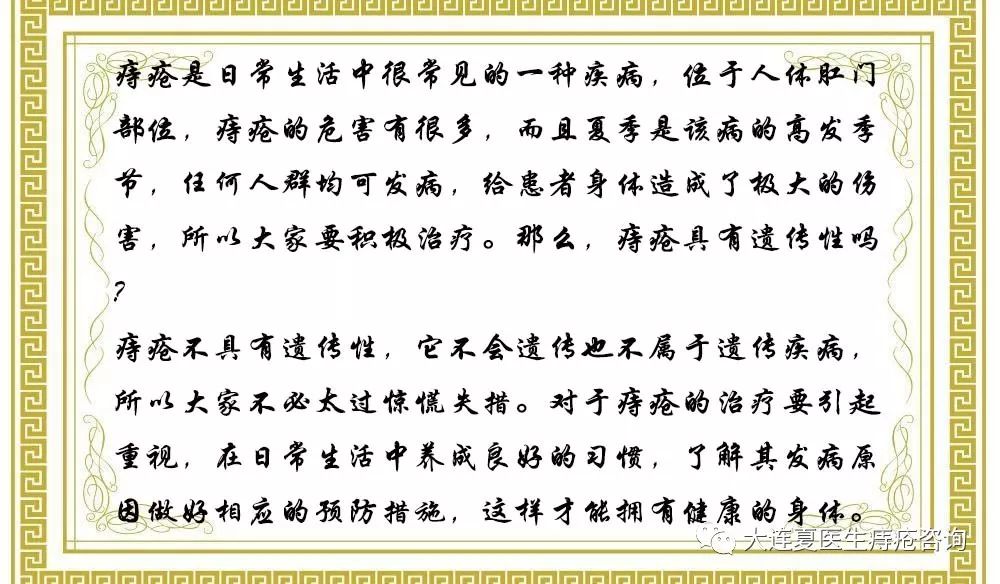 痔疮是日常生活中很常见的一种疾病，位于人体肛门
部位，痔疮的危害有很多，而且夏季是该病的高发季
节，任何人群均可发病，给患者身体造成了极大的伤
害，所以大家要积极治疗。那么，痔疮具有遗传性吗
？
痔疮不具有遗传性，它不会遗传也不属于遗传疾病，
所以大家不必太过惊慌失措。对于痔疮的治疗要引起
重视，在日常生活中养成良好的习惯，了解其发病原
因做好相应的预防措施，这样才能拥有健康的身体。
大连夏医生痔疮咨询